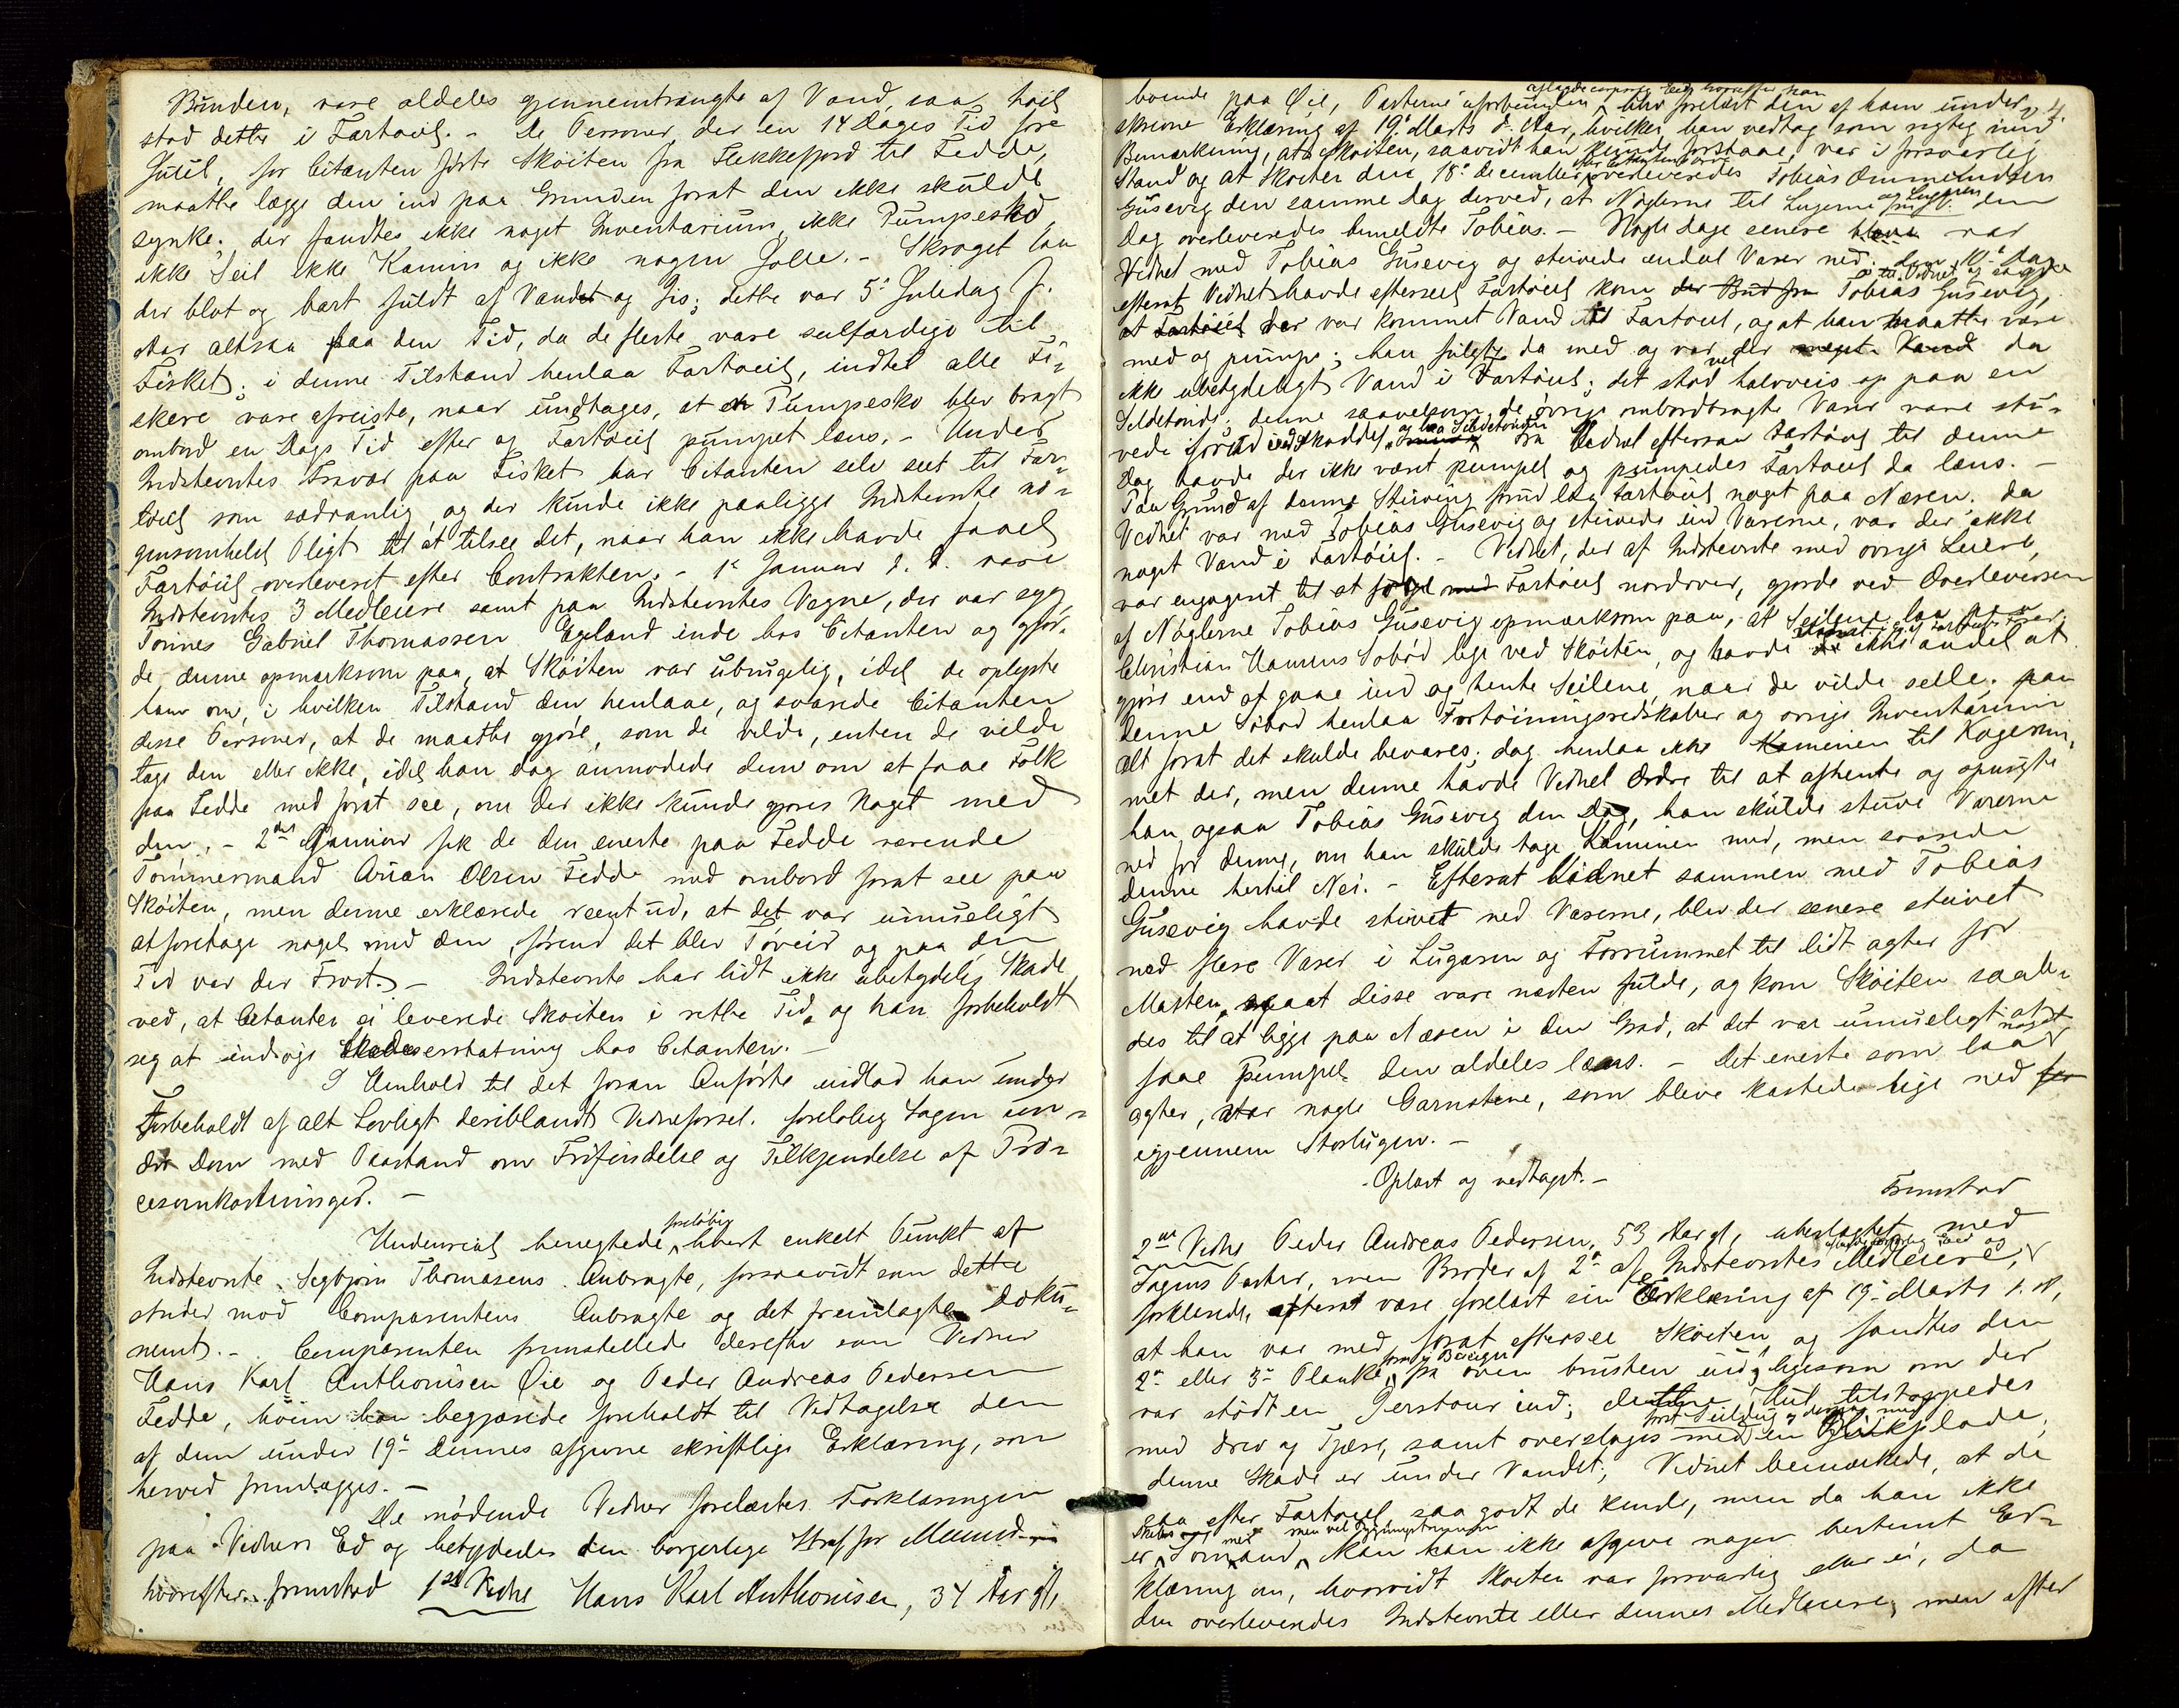 Bunden, vare aldeles gjennemtrængte af Vand, saa høit
stod dette i Fartøiet. - De Personer der en 14 Dages Tid føre
Juul, for Citanten førte Skøiten fra Flekkefjord til Fedde,
maatte lægge den ind paa Grunden forat den ikke skulde
synke; der fandtes ikke noget Inventarium, ikke Pumpesko,
ikke Seil ikke Kamin og ikke nogen Jolle. - Skroget laa
der blot og bart fuldt af Vandet og Iis; dette var 5' Juledag f.
Aar altsaa paa den Tid, da de fleste vare seilfærdige til
Fisket; i denne Tilstand henlaa Fartøiet, indtil alle Fi-
skere vare afreiste, naar undtages, at en Pumpesko blev bragt
ombord en Dags Tid efter og Fartøiet pumpet læns. - Under
Indstevntes Fravær paa Fisket har Citanten selv seet til Far-
tøiet som sædvanlig, og der kunde ikke paaligge Indstevnte no-
gensomhelst Pligt til at tilsee det, naar han ikke havde faaet
Fartøiet overleveret efter Contrakten. - 1' Januar d. A. vare
Indstevntes 3 Medleiere samt paa Indstevntes Vegne, der var syg,
Tønnes Gabriel Thomassen Egeland inde hos Citanten og gjor-
de denne opmærksom paa, at Skøiten var ubrugelig, idet de oplyste
ham om, i hvilken Tilstand den henlaae, og svarede Citanten
disse Personer, at de maatte gjøre, som de vilde, enten de vilde
tage den eller ikke, idet han dog anmodede dem om at faae Folk
paa Fedde med forat see, om der ikke kunde gjøres Noget med
den. - 2den Januar fik de den eneste paa Fedde værende
Tømmermand Arian Olsen Fedde med ombord forat see paa
Skøiten, men denne erklærede reent ud, at det var umueligt
at foretage noget med den, førend det blev Tøveir og paa den
Tid var der Frost. - Indstevnte har lidt ikke ubetydelig Skade
ved, at Citanten ei leverede Skøiten i rette Tid, og han forbeholdt
sig at indsøge Skadeserstatning hos Citanten. -
I Henhold til det foran Anførte indlod han under
Forbeholdt af alt Lovligt deriblandt Vidneførsel foreløbig Sagen un-
der Dom med Paastand om Frifindelse og Tilkjendelse af Pro-
cesomkostninger. -
foreløbig
Undenvist benegtede hvert enkelt Punkt af
Indstevnte Segbjørn Thomasens Anbragte, forsaavidt som dette
strider mod Comparentens Anbragte og det fremlagte Doku-
ment. - Comparenten fremstillede derefter som Vidner
Hans Karl Anthonisen Øie og Peder Andreas Pedersen
Fedde, hvem han begjærede foreholdt til Vedtagelse den
af dem under 19' dennes afgivne skriftlige Erklæring, som
herved fremlægges. -
De mødende Vidner forelæstes Forklaringen
paa Vidners Ed og betydedes den borgerlige Straf for Meened
hvorefter fremstod 1ste Vidne Hans Karl Anthonisen, 34 Aar gl,
4.
aflagde corporlig Ed, hvorefter han
boende paa Øie, Parterne uforbunden, blev forelæst den af ham under-
skrevne Erklæring af 19' Marts d. Aar, hvilken han vedtog som rigtig med
Bemærkning, at Skøiten, saavidt han kunde forstaae, var i forsvarlig
Stand og at Skøiten den 18' december overleveredes Tobias Ommundsen
Gusevig den samme Dag derved, at Nøglerne til Lugerne og Lugaren den
Dag overleveredes bemeldte Tobias. - Nogle dage senere var
Vidnet med Tobias Gusevig og stuvede endeel Varer ned; den 10' Dag
til Vidnet og sagde
efterat Vidnet havde efterseet Fartøiet kom der Bud fra Tobias Gusevig,
at Fartøiet der var kommet Vand i Fartøiet, og at han maatte være
med og pumpe; han fulgte da med og var der meget Vand da
ikke ubetydeligt Vand i Fartøiet; det stod vel halvveis op paa en
Sildetønde; denne saavelsom de øvrige ombordbragte Varer vare stu-
og laa Sildetønden
vede forud ved Skoddet. Fra Vidnet eftersaa Fartøiet til denne
Dag havde der ikke været pumpet og pumpedes Fartøiet da læns. -
Paa Grund af denne Stuving forud laa Fartøiet noget paa Næsen. Da
Vidnet var med Tobias Gusevig og stuvede ind Varerne, var der ikke
noget Vand i Fartøiet. - Vidnet, der af Indstevnte med øvrige Leiere,
var engageret til at følge med Fartøiet nordover, gjorde ved Overleverelsen
af Nøglerne Tobias Gusevig opmærksom paa, at Seilene laa paa
Christian Hansens Søbod lige ved Skøiten, og havde de ikke andet at
gjøre end at gaae ind og hente Seilene, naar de vilde seile; paa
denne Søbod henlaa Fortøiningsredskaber og øvrige Inventarium
alt forat det skulde bevares; dog henlaa ikke Kaminen til Kogerum-
met der, men denne havde Vidnet Ordre til at afhente og spurgte
han ogsaa Tobias Gusevig den Dag, han skulde stuve Varerne
ned for denne, om han skulde tage Kaminen med, men svarede
denne hertil Nei. - Efterat Vidnet sammen med Tobias
Gusevig havde stuvet ned Varerne, blev der senere stuvet
ned flere Varer i Lugaren og Forrummet til lidt agter for
Masten, saaat disse vare næsten fulde, og kom Skøiten saale-
des til at ligge paa Næsen i den Grad, at det var umueligt at
faae Pumpet den aldeles læns. - Det eneste som laa noget
agter, var nogle Garnstene, som bleve kastede lige ned
igjennem Storlugen. -
- Oplæst og vedtaget. -
Fremstod
2det Vidne Peder Andreas Pedersen, 53 Aar gl, ubeslægtet med
aflagde corporlig Ed og
Sagens Parter, men Broder af 2' af Indstevntes Medleiere,
forklarede, efterat være forelæst sin Erklæring af 19' Marts d. A,
at han var med forat efterse Skøiten, og fandtes den
for i Bougen
2' eller 3' Planke fra oven brusten ind, ligesom om der
var stødt en Perstour ind; dette Hul tilstoppedes
først Seildug og derpaa med
med drev og Tjære, samt overslages med en Blikplade;
denne Skade er under Vandet; Vidnet bemærkede, at de
saa efter Fartøiet saa godt de kunde, men da han ikke
er Sømand, kan han ikke afgive nogen bestemt Er-
klæring om, hvorvidt Skøiten var forsvarlig eller ei, da
den overleveredes Indstevnte eller dennes Medleiere, men efter